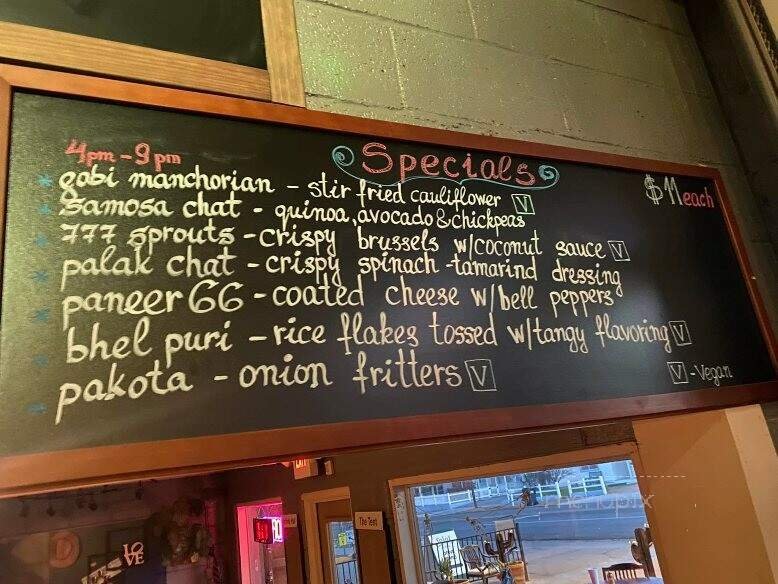 Specials
4pm - 9pm
$11 each
gobi manchorian - stir fried cauliflower V
samosa chat - quinoa, avocado & chickpeas
777 sprouts - crispy brussels w/coconut sauce V
palak chat - crispy spinach - tamarind dressing
paneer 66 - coated cheese w/bell peppers
bhel puri - rice flakes tossed w/tangy flavoring V
pakota - onion fritters V
V - Vegan
The Tent
LOVE
menupix